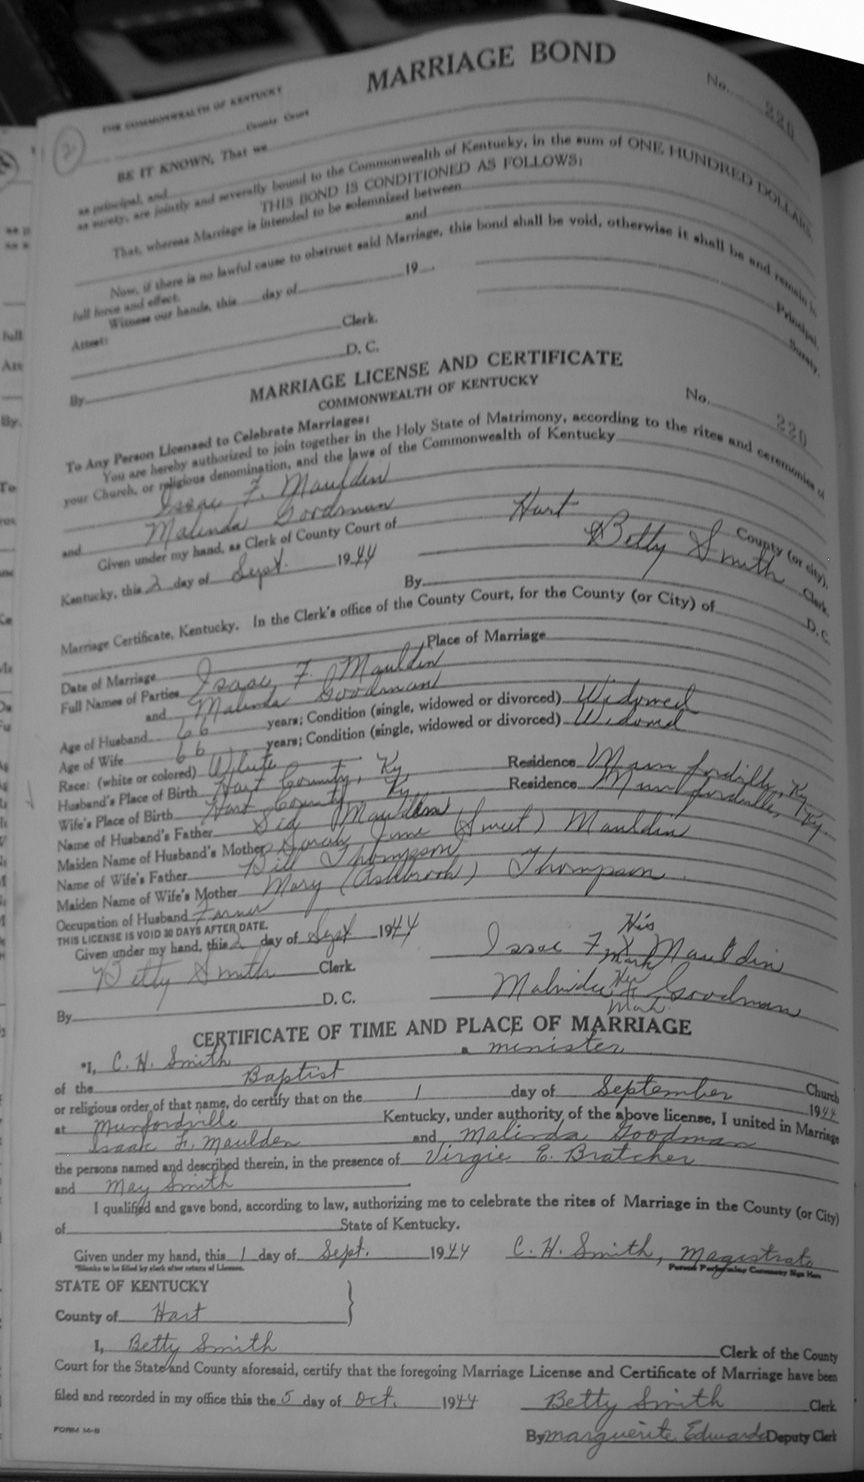 MARRIAGE BOND
THE COMMONWEALTH OF KENTUCKY
No. 220
2
County Court
BE IT KNOWN, That we
as principal, and
as surety, are jointly and severally bound to the Commonwealth of Kentucky, in the sum of ONE HUNDRED DOLLARS.
THIS BOND IS CONDITIONED AS FOLLOWS:
That, whereas Marriage is intended to be solemnized between
and
Now, if there is no lawful cause to obstruct said Marriage, this bond shall be void, otherwise it shall be and remain in
full force and effect.
Witness our hands, this day of 19
Principal.
Attest: Clerk.
Surety.
By D. C.
MARRIAGE LICENSE AND CERTIFICATE
COMMONWEALTH OF KENTUCKY
No. 220
To Any Person Licensed to Celebrate Marriages:
You are hereby authorized to join together in the Holy State of Matrimony, according to the rites and ceremonies of
your Church, or religious denomination, and the laws of the Commonwealth of Kentucky
Isaac F. Mauldin
and Malinda Goodman
Given under my hand, as Clerk of County Court of Hart County (or city),
Kentucky, this 2 day of Sept. 1944 Betty Smith Clerk.
By D. C.
Marriage Certificate, Kentucky. In the Clerk's office of the County Court, for the County (or City) of
Date of Marriage Place of Marriage
Full Names of Parties Isaac F. Mauldin
and Malinda Goodman
Age of Husband 66 years; Condition (single, widowed or divorced) Widowed
Age of Wife 66 years; Condition (single, widowed or divorced) Widowed
Race: (white or colored) White
Husband's Place of Birth Hart County, Ky Residence Munfordville, Ky
Wife's Place of Birth Hart County Ky. Residence Munfordville, Ky.
Name of Husband's Father Sid Mauldin
Maiden Name of Husband's Mother Sarah Jane (Sweet) Mauldin
Name of Wife's Father Bill Thompson
Maiden Name of Wife's Mother Mary (Ashbrook) Thompson
Occupation of Husband Farmer
THIS LICENSE IS VOID 30 DAYS AFTER DATE.
Given under my hand, this 2 day of Sept 1944
His
Isaac F. X Mauldin
Mark
Betty Smith Clerk.
Her
Malinda X Goodman
Mark
By D. C.
CERTIFICATE OF TIME AND PLACE OF MARRIAGE
*I, C. H. Smith a minister
of the Baptist Church
or religious order of that name, do certify that on the 1 day of September 1944
at Munfordville Kentucky, under authority of the above license, I united in Marriage
Isaac F. Maulden and Malinda Goodman
the persons named and described therein, in the presence of Virgie E. Bratcher
and May Smith
I qualified and gave bond, according to law, authorizing me to celebrate the rites of Marriage in the County (or City)
of State of Kentucky.
Given under my hand, this 1 day of Sept. 1944 C. H. Smith, Magistrate
*Blanks to be filled by clerk after return of License. Person Performing Ceremony Sign Here
STATE OF KENTUCKY
County of Hart
I, Betty Smith Clerk of the County
Court for the State and County aforesaid, certify that the foregoing Marriage License and Certificate of Marriage have been
filed and recorded in my office this the 5 day of Oct. 1944 Betty Smith Clerk
FORM 14-B
By Marguerite Edwards Deputy Clerk